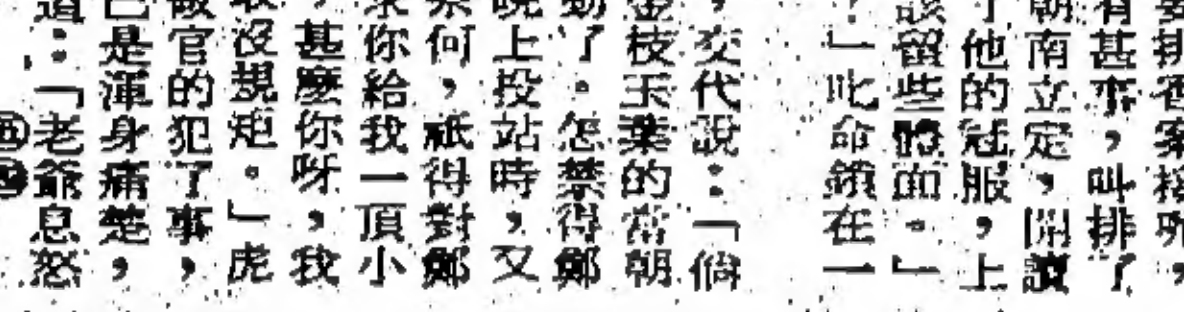 有甚事，叫排了
朝南立定，開讀
了他的冠服，上
該留些體面。」
？」叱命鎖在一
，交代說：「倘
金枝玉葉的當朝
動了。怎禁得鄭
晚上投站時，又
奈何，祇得對鄭
求你給我一頂小
，甚麼你呀，我
敢沒規矩。」虎
做官的犯了事，
已是渾身痛楚，
道：「老爺息怒